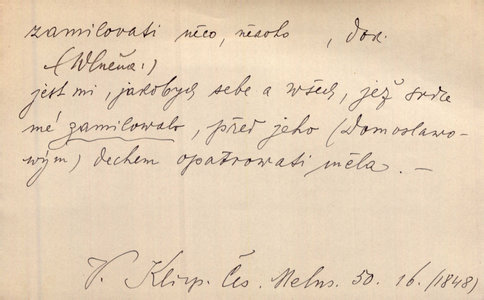 zamilovati něco, někoho , dok.
(Wlněna:)
jest mi, jakobych sebe a wšech, jež srdce
mé zamilowalo, před jeho (Domoslawo-
wým) dechem opatrowati měla. —
V. Klicp. Čes. Meluz. 50. 16. (1848)